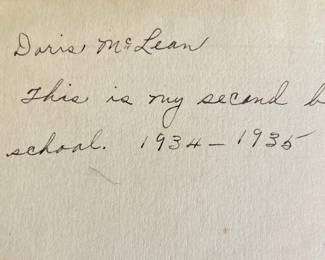 Doris McLean
This is my second b
school. 1934 – 1935